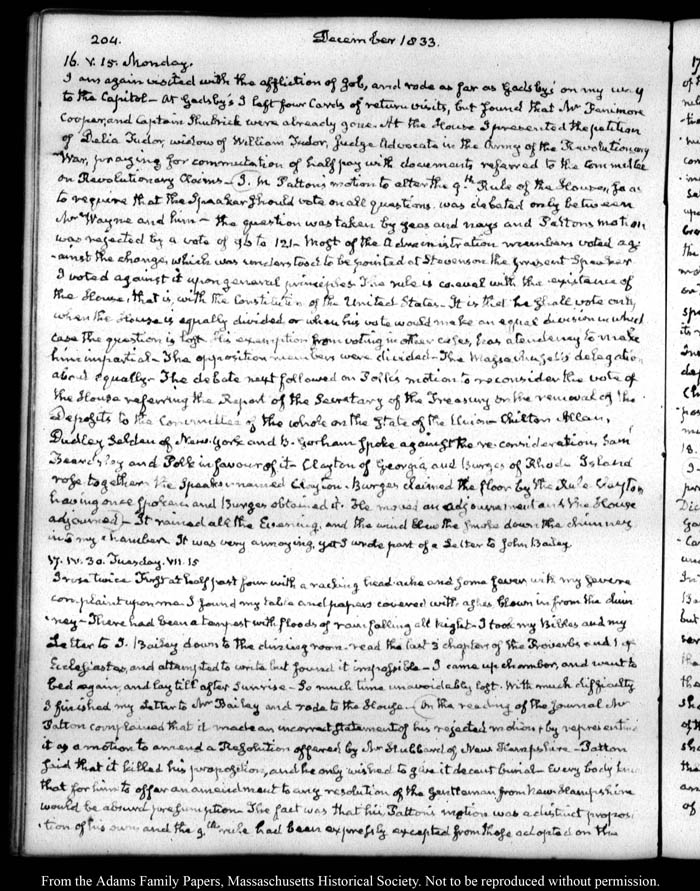 204. December 1833.
16. V. 15. Monday.
I am again visited with the affliction of Job, and rode as far as Gadsby's on my way
to the Capitol — At Gadsby's I left four Cards of return visits, but found that Mr Fenimore
Cooper, and Captain Shubrick were already gone. At the House I presented the petition
of Delia Tudor, widow of William Tudor, Judge Advocate in the Army of the Revolutionary
War, praying for commutation of half pay with documents referred to the Committee
on Revolutionary Claims — J. M Patton's motion to alter the 9th Rule of the House, so as
to require that the Speaker should vote on all questions was debated only between
Mr Wayne and him — the question was taken by yeas and nays and Patton's motion
was rejected by a vote of 96 to 121 — Most of the Administration members voted ag-
-ainst the change, which was understood to be pointed at Stevenson the present Speaker
I voted against it upon general principles. The rule is coeval with the existence of
the House, that is, with the Constitution of the United States — It is that he shall vote only
when the House is equally divided or when his vote would make an equal division in which
case the question is lost. His exemption from voting in other cases, has a tendency to make
him impartial — The opposition members were divided — The Massachusetts delegation
about equally — The debate next followed on Polk's motion to reconsider the vote of
the House referring the Report of the Secretary of the Treasury on the removal of the
Deposits to the Committee of the whole on the State of the Union — Chilton Allan,
Dudley Selden of New-York and B. Gorham spoke against the re-consideration, Saml
Beardsley and Polk in favour of it — Clayton of Georgia, and Burges of Rhode Island
rose together. The Speaker named Clayton — Burges claimed the floor by the Rule, Clayton
having once spoken and Burges obtained it. He moved an adjournment and the House
adjourned — It rained all the Evening, and the wind blew the smoke down the chimney
into my chamber. It was very annoying, yet I wrote part of a Letter to John Bailey
17. IV. 30. Tuesday. VII. 15
I rose twice First at half past four with a racking head-ache and some fever with my severe
complaint upon me. I found my table and papers covered with ashes blown in from the chim-
-ney — There had been a tempest with floods of rain falling all night — I took my Bibles and my
Letter to J. Bailey down to the dining room. read the last 3 chapters of the Proverbs and 1 of
Ecclesiastes, and attempted to write but found it impossible — I came up chamber, and went to
bed again, and lay till after sunrise — So much time unavoidably lost. With much difficulty
I finished my Letter to Mr Bailey and rode to the House — On the reading of the Journal Mr
Patton complained that it made an incorrect statement of his rejected motion, by representing
it as a motion to amend a Resolution offered by Mr Hubbard of New Hampshire — Patton
said that it killed his proposition, and he only wished to give it decent burial — Every body knew
that for him to offer an amendment to any resolution of the Gentleman from New Hampshire
would be absurd presumption — The fact was that his, Patton's motion was a distinct proposi-
-tion of his own, and the 9th rule had been expressly excepted from those adopted on the
From the Adams Family Papers, Massachusetts Historical Society. Not to be reproduced without permission.